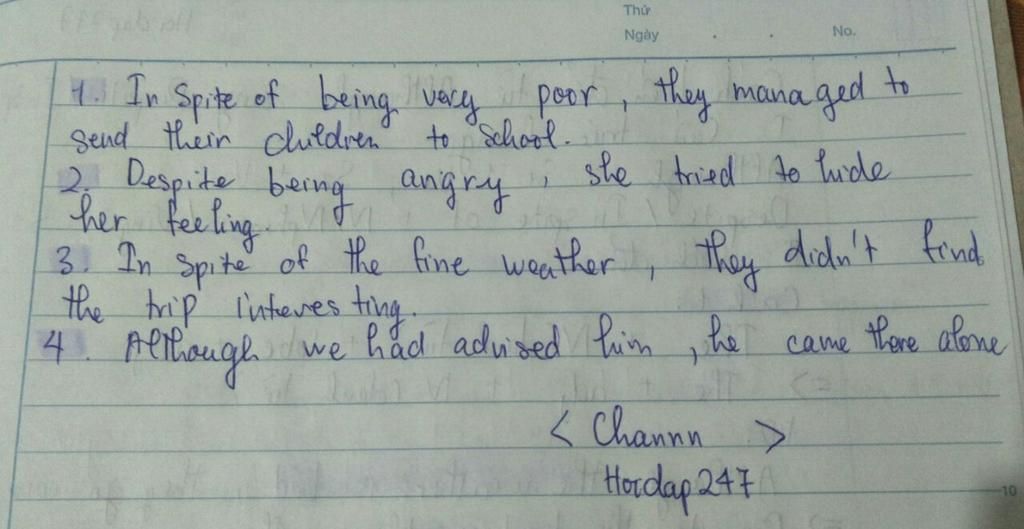 Thứ
Ngày . . No.
1. In spite of being very poor, they managed to
send their children to school.
2. Despite being angry, she tried to hide
her feeling.
3. In spite of the fine weather, they didn't find
the trip interesting.
4. Although we had advised him, he came there alone
< Channn >
Hoidap247
10